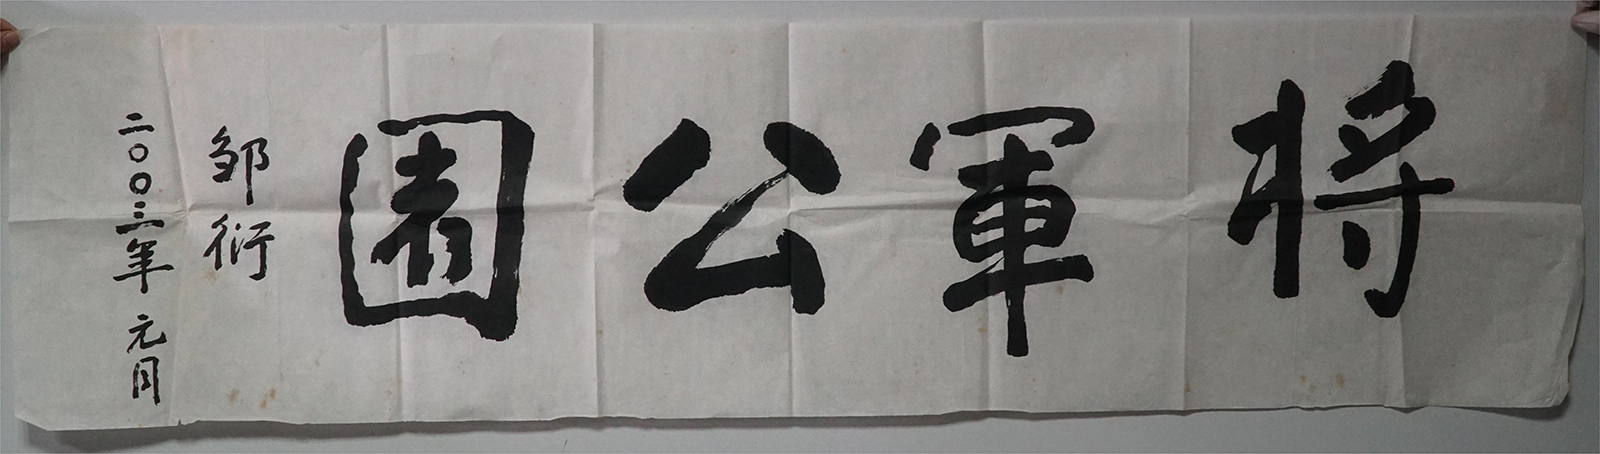 将軍公園
邹衍
二〇〇三年元月